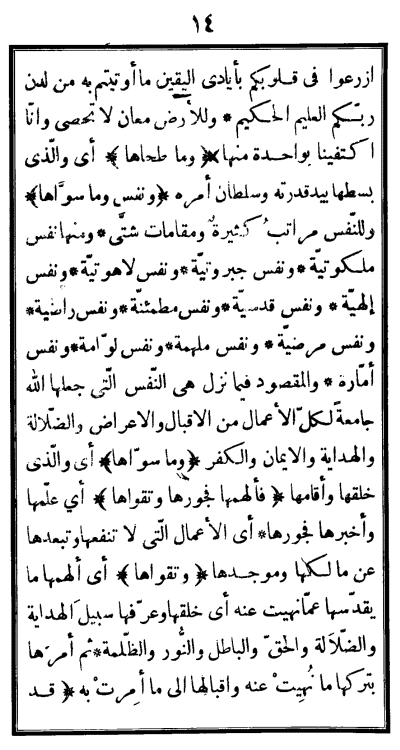 ١٤
ازرعوا فى قلوبكم بأيادى اليقين ما أوتيتم به من لدن
ربّكم العليم الحكيم * وللأرض معان لا تحصى وانّا
اكتفينا بواحدة منها * ﴿ وما طحاها ﴾ أى والّذى
بسطها بيد قدرته وسلطان أمره ﴿ ونفس وما سوّاها ﴾
وللنّفس مراتب كثيرة ومقامات شتّى * ومنها نفس
ملكوتيّة * ونفس جبروتيّة * ونفس لاهوتيّة * ونفس
إلهيّة * ونفس قدسيّة * ونفس مطمئنّة * ونفس راضية *
ونفس مرضيّة * ونفس ملهمة * ونفس لوّامة * ونفس
أمّارة * والمقصود فيما نزل هى النّفس الّتى جعلها الله
جامعةً لكلّ الأعمال من الاقبال والاعراض والضّلالة
والهداية والايمان والكفر ﴿ وما سوّاها ﴾ أى والّذى
خلقها وأقامها ﴿ فألهمها فجورها وتقواها ﴾ أي علّمها
وأخبرها فجورها * أى الأعمال الّتى لا تنفعها وتبعدها
عن مالكها وموجدها ﴿ وتقواها ﴾ أى ألهمها ما
يقدّسها عمّا نهيت عنه أى خلقها وعرّفها سبيل الهداية
والضّلالة والحقّ والباطل والنُّور والظّلمة * ثم أمرَها
بتركها ما نُهِيتْ عنه واقبالها الى ما أُمِرتْ به ﴿ قد